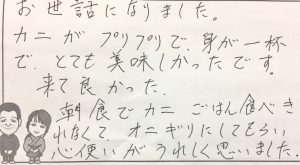 お世話になりました。
カニがプリプリで、身が一杯
で、とても美味しかったです。
来て良かった。
朝食でカニごはん食べき
れなくて、オニギリにしてもらい
心使いがうれしく思いました